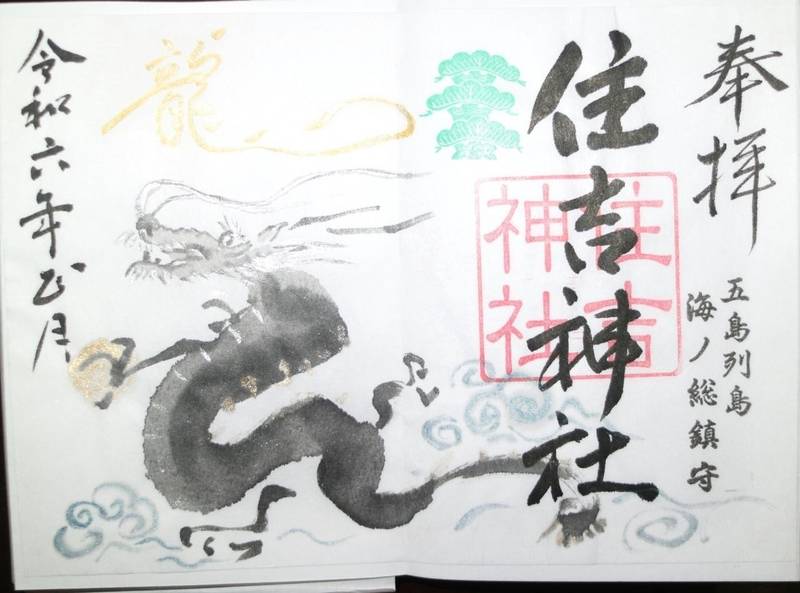 奉拝
五島列島
海ノ総鎮守
住吉神社
住吉
神社
龍
令和六年正月